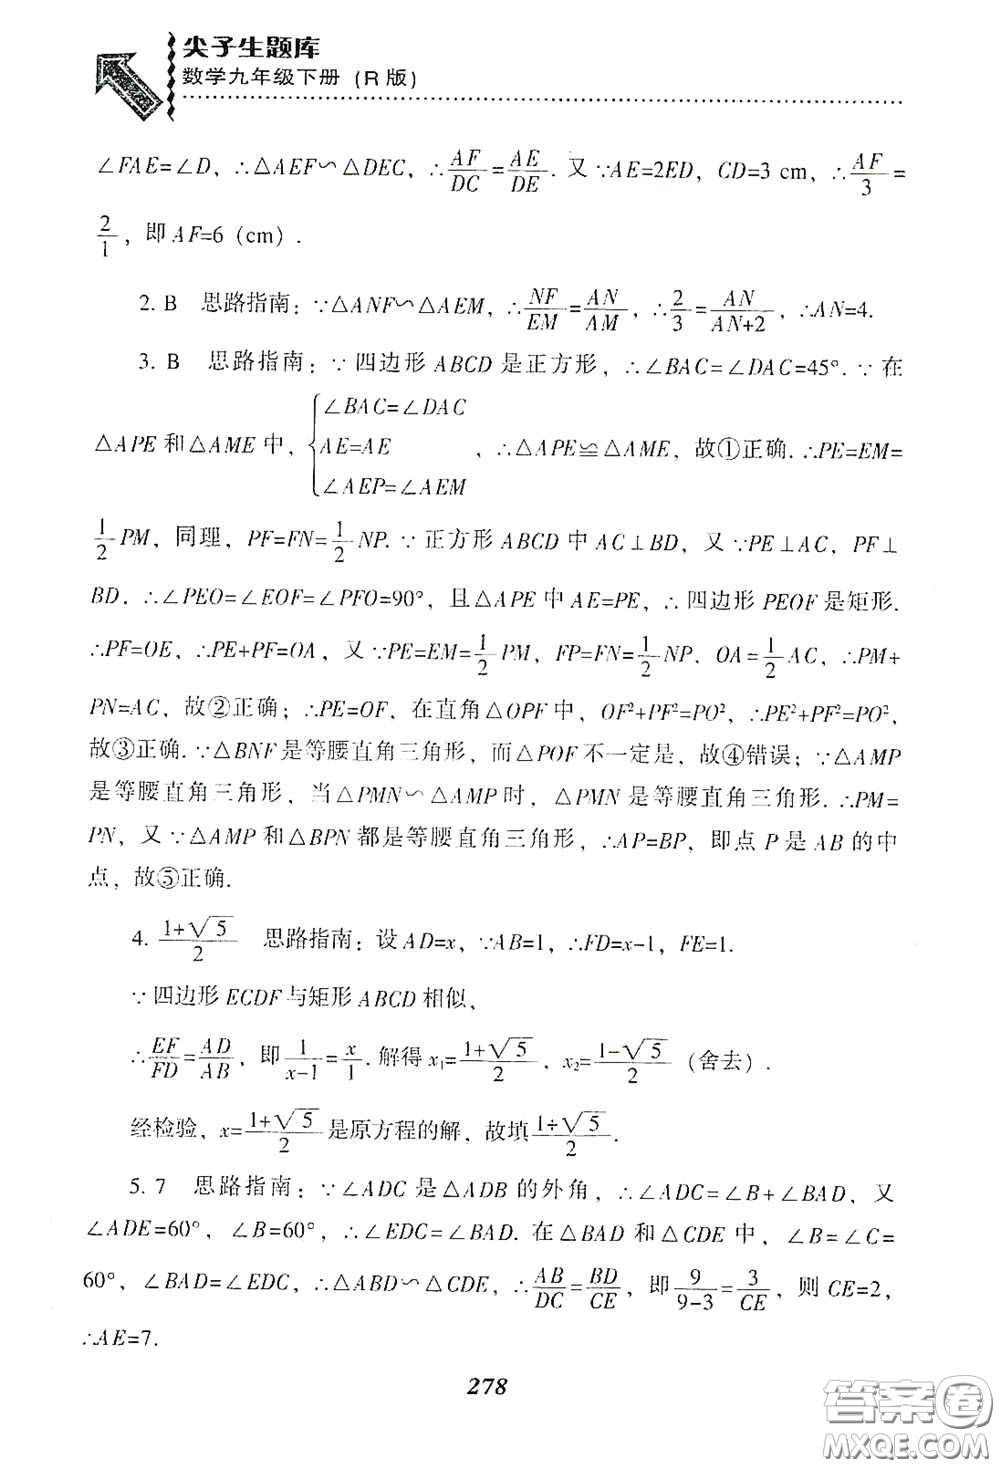 尖子生题库
数学九年级下册（R版）
∠FAE=∠D，∴△AEF∽△DEC，∴AF/DC=AE/DE. 又∵AE=2ED，CD=3 cm，∴AF/3=
2/1，即AF=6（cm）.
2. B 思路指南：∵△ANF∽△AEM，∴NF/EM=AN/AM，∴2/3=AN/(AN+2)，∴AN=4.
3. B 思路指南：∵四边形ABCD是正方形，∴∠BAC=∠DAC=45°. ∵在
△APE和△AME中，{∠BAC=∠DAC
AE=AE
∠AEP=∠AEM，∴△APE≌△AME，故①正确. ∴PE=EM=
1/2PM，同理，PF=FN=1/2NP. ∵正方形ABCD中AC⊥BD，又∵PE⊥AC，PF⊥
BD．∴∠PEO=∠EOF=∠PFO=90°，且△APE中AE=PE，∴四边形PEOF是矩形.
∴PF=OE，∴PE+PF=OA，又∵PE=EM=1/2PM，FP=FN=1/2NP．OA=1/2AC，∴PM+
PN=AC，故②正确；∴PE=OF，在直角△OPF中，OF²+PF²=PO²，∴PE²+PF²=PO²，
故③正确. ∵△BNF是等腰直角三角形，而△POF不一定是，故④错误；∵△AMP
是等腰直角三角形，当△PMN∽△AMP时，△PMN是等腰直角三角形. ∴PM=
PN，又∵△AMP和△BPN都是等腰直角三角形，∴AP=BP，即点P是AB的中
点，故⑤正确.
4. (1+√5)/2 思路指南：设AD=x，∵AB=1，∴FD=x-1，FE=1.
∵四边形ECDF与矩形ABCD相似，
∴EF/FD=AD/AB，即1/(x-1)=x/1. 解得x₁=(1+√5)/2，x₂=(1-√5)/2（舍去）.
经检验，x=(1+√5)/2是原方程的解，故填(1+√5)/2.
5. 7 思路指南：∵∠ADC是△ADB的外角，∴∠ADC=∠B+∠BAD，又
∠ADE=60°，∠B=60°，∴∠EDC=∠BAD. 在△BAD和△CDE中，∠B=∠C=
60°，∠BAD=∠EDC，∴△ABD∽△CDE，∴AB/DC=BD/CE，即9/(9-3)=3/CE，则CE=2，
∴AE=7.
278
答案卷
MXQE.COM